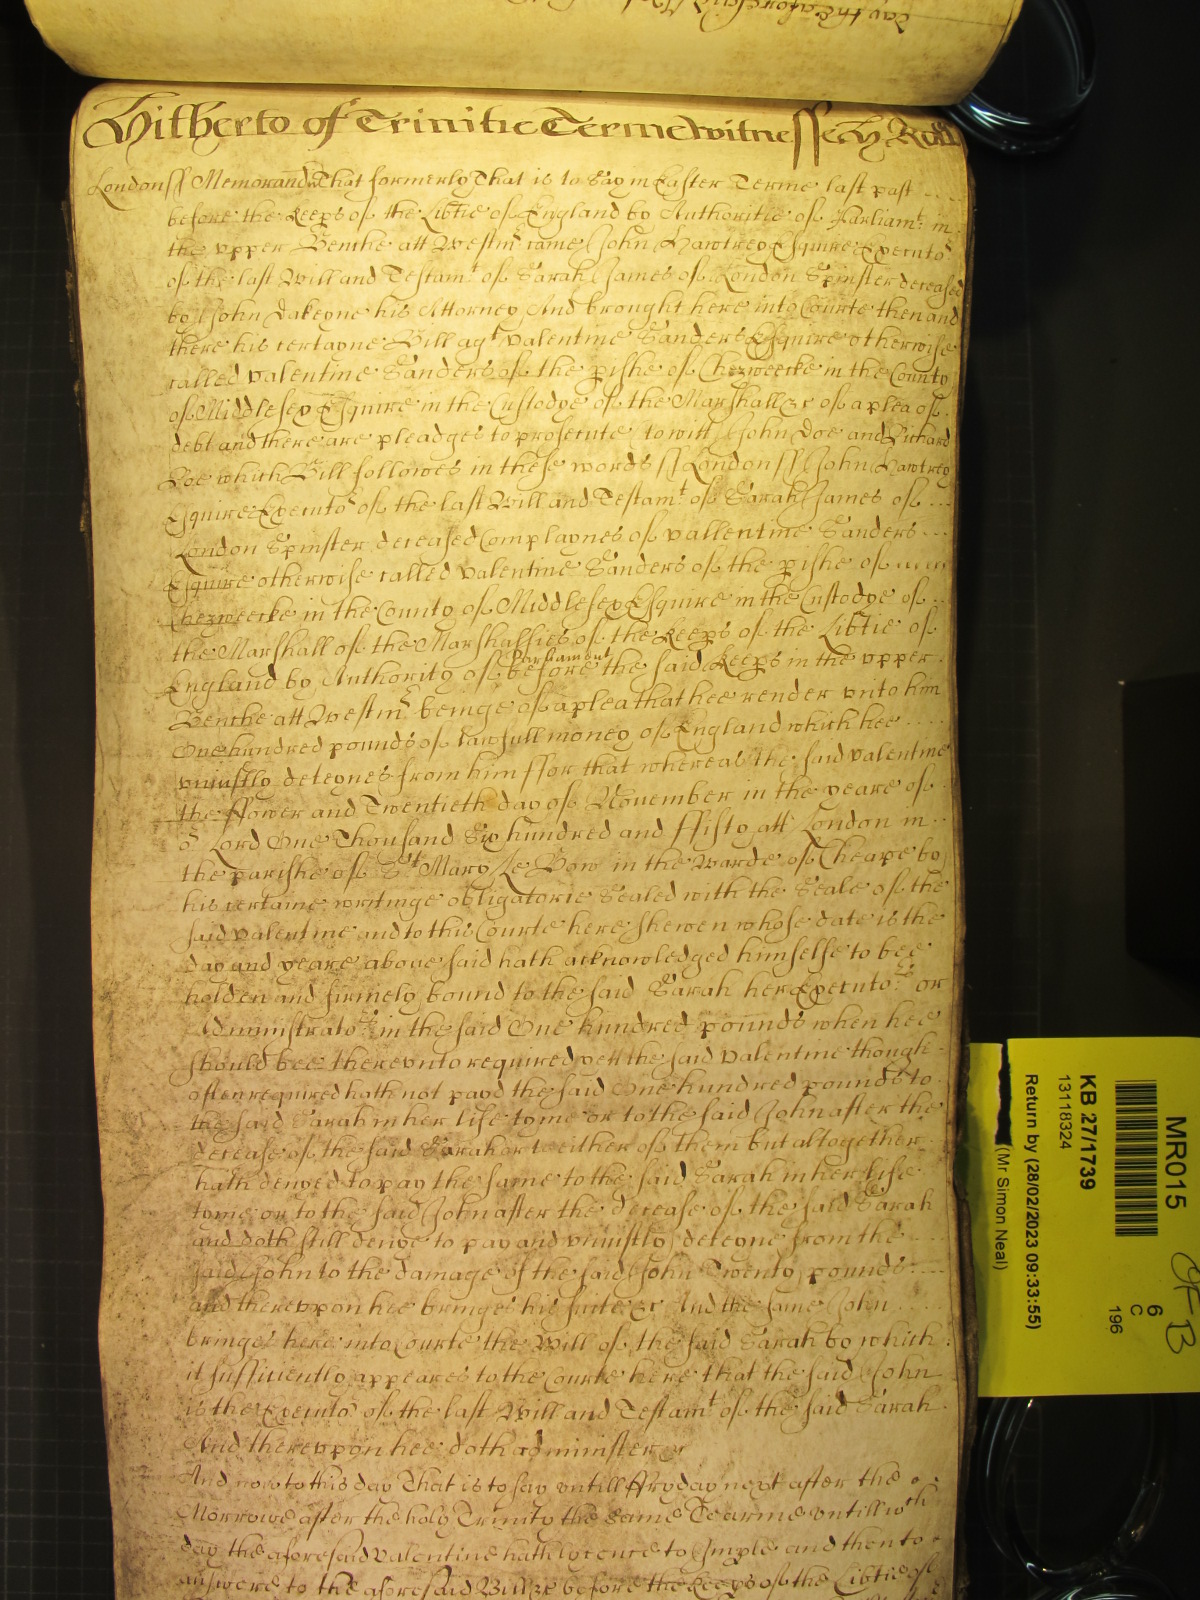 Hitherto of Trinitie Terme witnesseth Roll
London ss Memorand That formerly That is to say in Easter Terme last past
before the Keeps of the Libtie of England by Authoritie of Parliamt in
the upper Benche att Westmr came John Hawtrey Esquire Executor
of the last Will and Testamt of Sarah James of London Spinster deceased
by John Dakeyne his Attorney And brought here into Courte then and
there his certayne Bill agt Valentine Sanders Esquire otherwise
called Valentine Sanders of the pishe of Chezweecke in the County
of Middlesex Esquire in the Custodye of the Marshall &c of a plea of
debt and there are pleadges to prosecute to witt John Doe and Richard
Roe which Bill followes in these words ss London ss John Hawtrey
Esquire Executor of the last Will and Testamt of Sarah James of
London Spinster deceased Complaynes of Vallentine Sanders
Esquire otherwise called Valentine Sanders of the pishe of
Chezweecke in the County of Middlesex Esquire in the Custodye of
the Marshall of the Marshallsies of the Keeps of the Libtie of
Parliament
England by Authority of before the said Keeps in the upper
Benche att Westmr beinge of a plea that hee render unto him
One hundred pounds of lawfull money of England which hee
uniustly deteynes from him ffor that whereas the said Valentine
the ffower and Twentieth day of November in the yeare of
or Lord One Thousand Six hundred and ffifty att London in
the parishe of St Mary Le Bow in the Warde of Cheape by
his certaine writinge obligatorie Sealed with the Seale of the
said Valentine and to this Courte here shewen whose date is the
day and yeare above said hath acknowledged himselfe to bee
holden and firmely bound to the said Sarah her Executors or
Administrators in the said One hundred pounds when hee
should bee thereunto required yett the said Valentine though
often required hath not payd the said One hundred pounds to
the said Sarah in her life tyme or to the said John after the
decease of the said Sarah or to either of them but altogether
hath denyed to pay the same to the said Sarah in her life
tyme or to the said John after the decease of the said Sarah
and doth still denye to pay and uniustly deteyne from the
said John to the damage of the said John Twenty pounds
and thereuppon hee bringes his suite &c And the same John
bringes here into Courte the Will of the said Sarah by which
it sufficiently appeares to the Courte here that the said John
is the Executor of the last Will and Testamt of the said Sarah
And thereuppon hee doth administer &c
And now to this day That is to say untill ffryday next after the
Morrowe after the holy Trinity the same Tearme untill wch
day the aforesaid Valentine hath lycence to Imple and then to
answere to the aforesaid Bill &c before the Keeps of the Libtie of
MR015
KB 27/1739
13118324
Return by (28/02/2023 09:33:55)
(Mr Simon Neal)
6
C
196